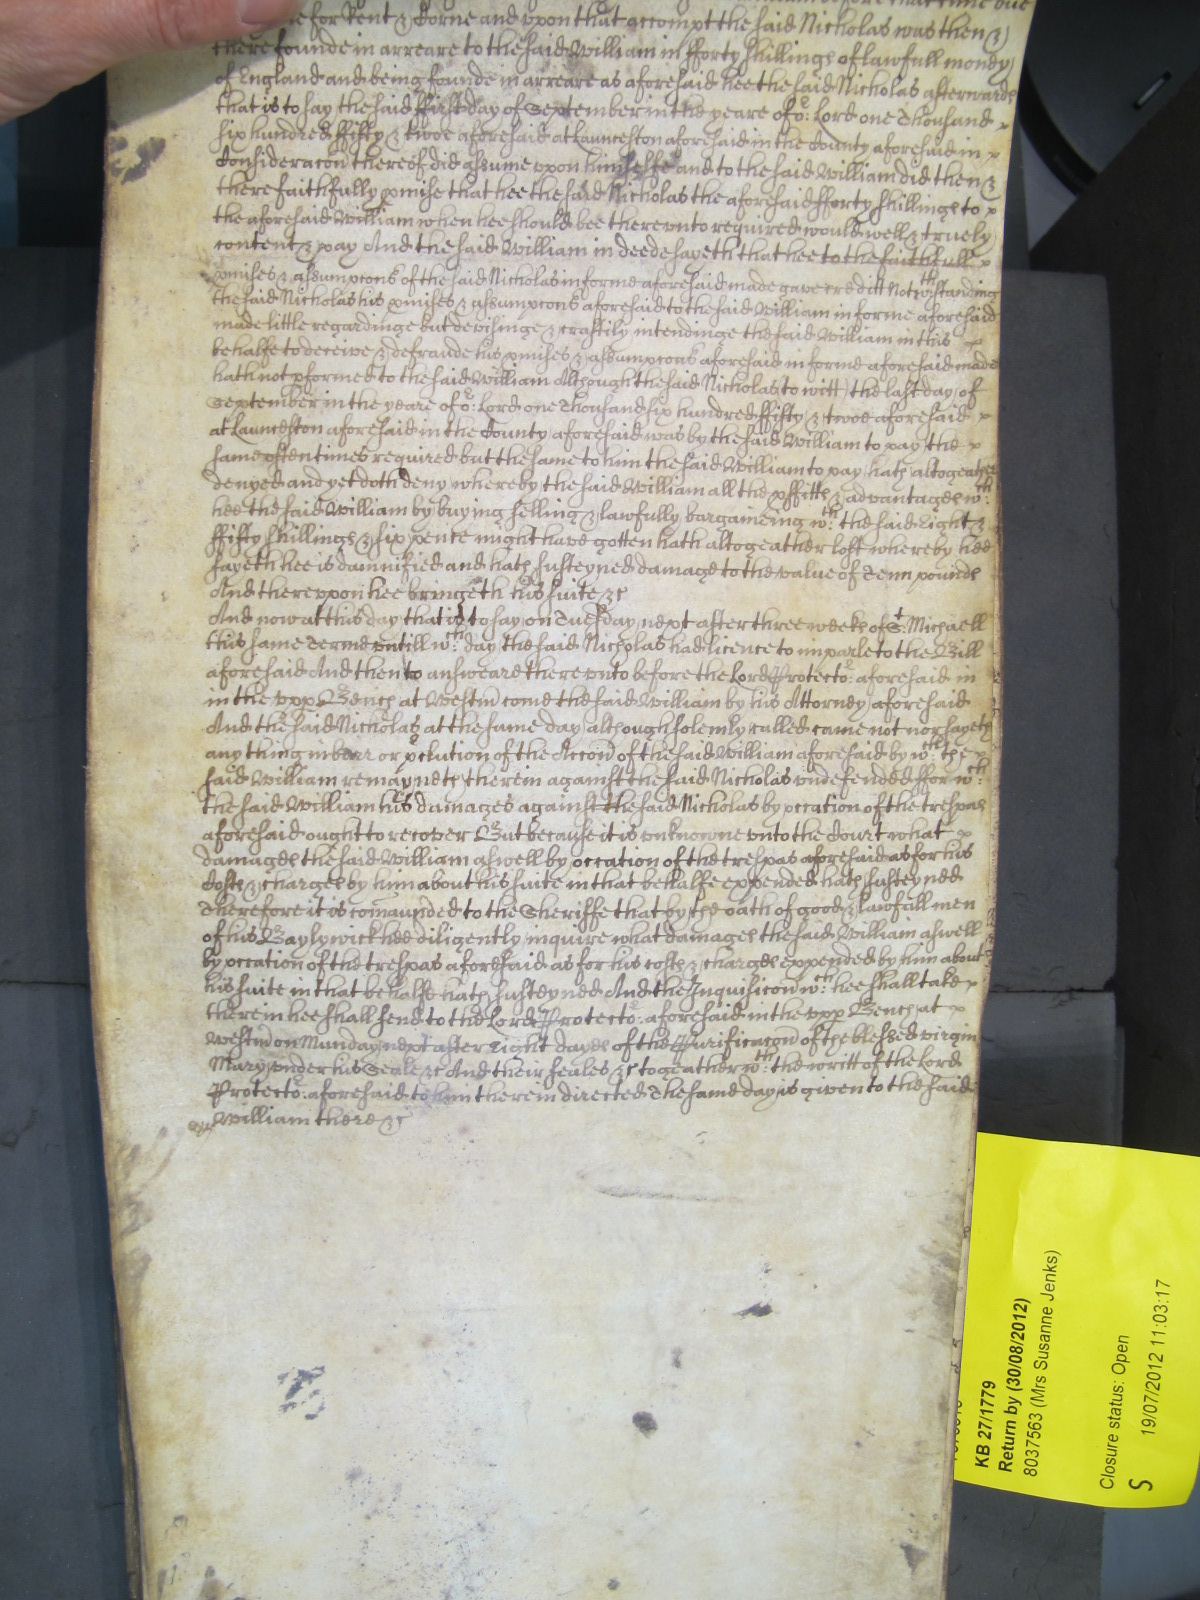 before that time due
for Rent & Corne and vpon that accompt the said Nicholas was then &
there founde in arreare to the said William in fforty shillings of lawfull money
of England and being founde in arreare as aforesaid hee the said Nicholas afterwards
that is to say the said ffirst day of September in the yeare of or: Lord one Thousand
six hundred ffifty & twoe aforesaid at Launceston aforesaid in the County aforesaid in
Consideracon thereof did assume vpon himselfe and to the said William did then &
there faithfully pmise that hee the said Nicholas the aforesaid fforty shillings to
the aforesaid William when hee should bee therevnto required would well & truely
content & pay And the said William in deede sayeth that hee to the faithfull
pmises & assumpcons of the said Nicholas in forme aforesaid made gave creditt Notwth:standing
the said Nicholas his pmises & assumpcons aforesaid to the said William in forme aforesaid
made little regardinge but devisinge & craftily intendinge the said William in this
behalfe to deceive & defraude his pmises & assumpcons aforesaid in forme aforesaid made
hath not pformed to the said William Although the said Nicholas to witt the last day of
September in the yeare of or: Lord one Thousand six hundred ffifty & twoe aforesaid
at Launceston aforesaid in the County aforesaid was by the said William to pay the
same oftentimes required but the same to him the said William to pay hath altogeather
denyed and yet doth deny whereby the said William all the pffitts & advantages wch:
hee the said William by buying selling & lawfully bargaineing wth: the said Eight &
ffifty shillings & six pence might have gotten hath altogeather lost whereby hee
sayeth hee is damnified and hath susteyned damage to the value of Tenn pounds
And therevpon hee bringeth his suite &c
And now at this day that is to say on Tuesday next after three weeks of St: Michaell
this same Terme vntill wch: day the said Nicholas had licence to imparle to the Bill
aforesaid And then to answeare therevnto before the Lord Protector: aforesaid in
in the vpp Bench at Westm come the said William by his Attorney aforesaid
And the said Nicholas at the same day although solemly called came not nor sayeth
any thing in barr or pclution of the Accon of the said William aforesaid by wch: the
said William remayneth therein against the said Nicholas vndefended ffor wch:
the said William his damages against the said Nicholas by occation of the trespas
aforesaid ought to recover But because it is vnknowne vnto the Court what
damages the said William aswell by occation of the trespas aforesaid as for his
Costs & charges by him about his suite in that behalfe expended hath susteyned
Therefore it is comaunded to the Sheriffe that by the oath of good & lawfull men
of his Baylywick hee diligently inquire what damages the said William aswell
by occation of the trespas aforesaid as for his costs & charges expended by him about
his suite in that behalfe hath susteyned And the Inquisicon wch: hee shall take
therein hee shall send to the Lord Protector: aforesaid in the vpp Bench at
Westm on Munday next after Eight dayes of the Purificacon of the blessed virgin
Mary vnder his Seale &c And their seales &c togeather wth: the writt of the Lord
Protector: aforesaid to him therein directed The same day is given to the said
William there &c
KB 27/1779
Return by (30/08/2012)
8037563 (Mrs Susanne Jenks)
Closure status: Open
S 19/07/2012 11:03:17